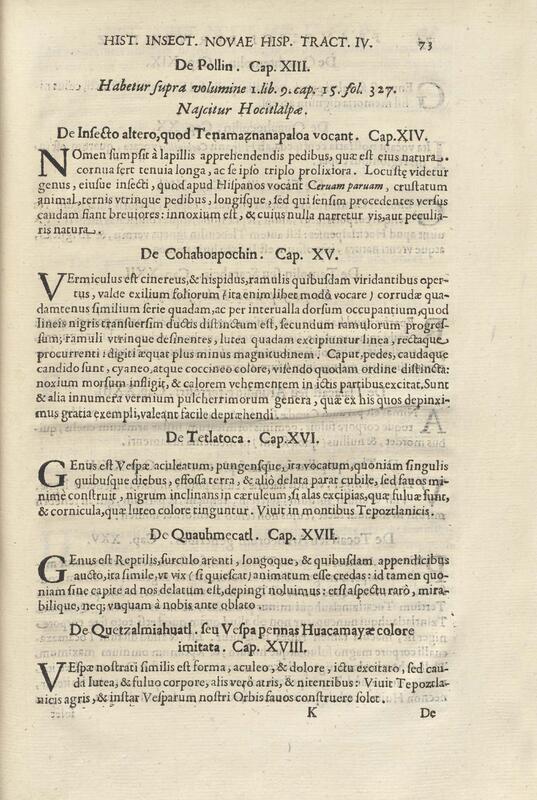 HIST. INSECT. NOVAE HISP. TRACT. IV. 73
De Pollin. Cap. XIII.
Habetur supra volumine 1. lib. 9. cap. 15. fol. 327.
Nascitur Hocitlalpæ.
De Insecto altero, quod Tenamaznanapaloa vocant. Cap. XIV.
NOmen sumpsit à lapillis apprehendendis pedibus, quæ est eius natura.
cornua fert tenuia longa, ac se ipso triplo prolixiora. Locustę videtur
genus, eiusue insecti, quod apud Hispanos vocant Ceruam paruam, crustatum
animal, ternis vtrinque pedibus, longisque, sed qui sensim procedentes versus
caudam fiant breuiores: innoxium est, & cuius nulla narretur vis, aut peculia-
ris natura.
De Cohahoapochin. Cap. XV.
VErmiculus est cinereus, & hispidus, ramulis quibusdam viridantibus oper-
tus, valde exilium foliorum (ita enim libet modò vocare) corrudæ qua-
damtenus similium serie quadam, ac per interualla dorsum occupantium, quod
lineis nigris transuersim ductis distinctum est, secundum ramulorum progres-
sum; ramuli vtrinque desinentes, lutea quadam excipiuntur linea, rectaque
procurrenti: digiti æquat plus minus magnitudinem. Caput, pedes, caudaque
candido sunt, cyaneo, atque coccineo colore, visendo quodam ordine distincta:
noxium morsum infligit, & calorem vehementem in ictis partibus, excitat. Sunt
& alia innumera vermium pulcherrimorum genera, quæ ex his quos depinxi-
mus gratia exempli, valeant facile depræhendi.
De Tetlatoca. Cap. XVI.
GEnus est Vespæ aculeatum, pungensque, ita vocatum, quoniam singulis
quibusque diebus, effossa terra, & aliò delata parat cubile, sed fauos mi-
nimè construit, nigrum inclinans in cæruleum, si alas excipias, quæ fuluæ sunt,
& cornicula, quæ luteo colore tinguntur. Viuit in montibus Tepoztlanicis.
De Quauhmecatl. Cap. XVII.
GEnus est Reptilis, surculo arenti, longoque, & quibusdam appendicibus
aucto, ita simile, vt vix (si quiescat) animatum esse credas: id tamen quo-
niam sine capite ad nos delatum est, depingi noluimus: etsi aspectu rarò, mira-
bilique, neq; vnquam à nobis ante oblato.
De Quetzalmiahuatl. seu Vespa pennas Huacamayæ colore
imitata. Cap. XVIII.
VEspæ nostrati similis est forma, aculeo, & dolore, ictu excitato, sed cau-
da lutea, & fuluo corpore, alis verò atris, & nitentibus: Viuit Tepoztla-
nicis agris, & instar Vesparum nostri Orbis fauos construere solet.
K De